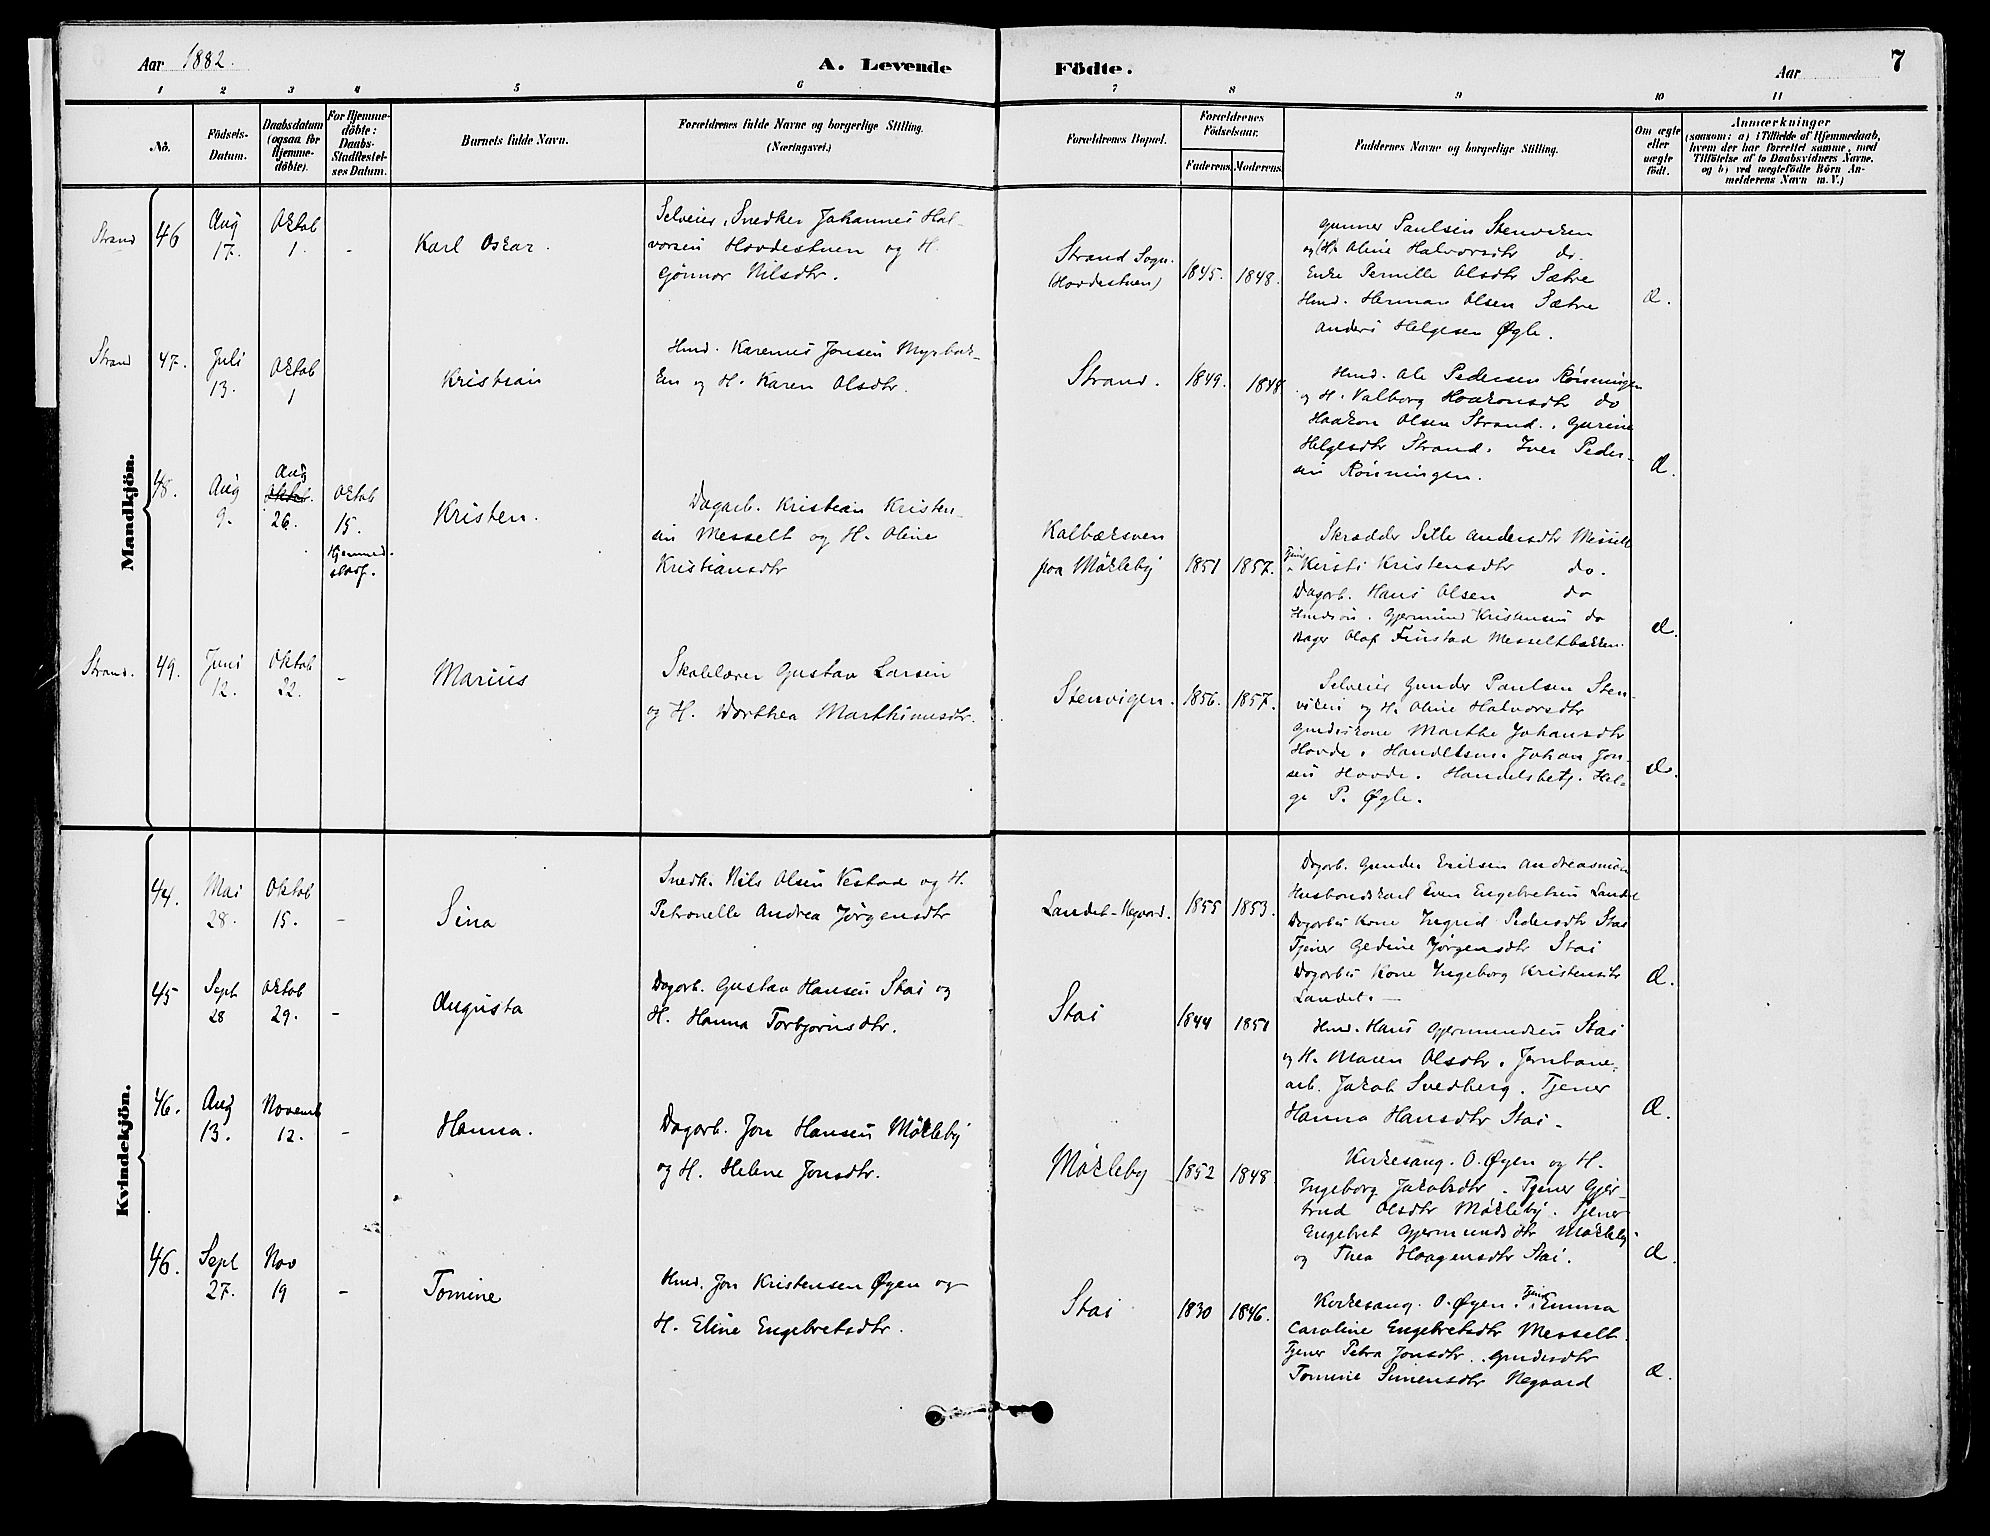 Aar 1882.
A. Levende Födte.
Aar
7
1 2 3 4 5 6 7 8 9 10 11
No.
Födsels-Datum.
Daabsdatum (ogsaa for Hjemme-döbte).
For Hjemme-döbte: Daabs-Stadfestel-ses Datum.
Barnets fulde Navn.
Forældrenes fulde Navne og borgerlige Stilling.
(Næringsvei.)
Forældrenes Bopæl.
Forældrenes Födselsaar.
Faderens. Moderens.
Faddernes Navne og borgerlige Stilling.
Om ægte eller uægte født.
Anmærkninger
(saasom: a) i Tilfælde af Hjemmedaab,
hvem der har forrettet samme, med
Tilföielse af to Daabsvidners Navne.
og b) ved uægtefödte Börn An-
melderens Navn m. V.)
Mandkjön.
Strand 46 Aug 17. Oktob 1. -
Karl Oskar.
Selveier, Snedker Johannes Hal-
vorsen Hovdestuen og H.
Gjönnor Nilsdtr.
Strand Sogn.
(Hovdestuen)
1845. 1848.
Gunner Paulsen Stenviken
og H. Oline Halvorsdtr do.
Enke Pernille Olsdtr Sætre
Hmd. Herman Olsen Sætre
Anders Helgesen Øgle.
Æ.
Strand 47. Juli 13. Oktob 1
Kristian
Hmd. Karenus Jonsen Myrbak-
ken og H. Karen Olsdtr.
Strand. 1849. 1848
Hmd. Ole Pedersen Rönningen
og H. Valborg Haakonsdtr do
Haakon Olsen Strand. Gurine
Helgesdtr Strand. Iver Peder-
sen Rönningen.
Æ.
48. Aug 9. Aug Oktob. 26. Oktob 15. Hjemmed.
Kristen.
Dagarb. Kristian Kristen-
sen Messelt og H. Oline
Kristiansdtr
Kalbæksven
paa Mökleby
1851 1857.
Skrædder Sille Andersdtr Messelt
Tjener Kirsti Kristensdtr do.
Dagarb. Hans Olsen do
Hmdsön. Gjermund Kristensen do
Bager Olaf Finstad Messeltbakken.
Æ.
Strand. 49. Juni 12. Oktob 22. -
Marius
Skolelærer Gustav Larsen
og H. Dorthea Marthinusdtr.
Stenvigen. 1856. 1857.
Selveier Gunder Paulsen Sten-
viken og H. Oline Halvorsdtr
Gmdskone Marthe Johansdtr
Hovde. Handelsm. Johan Jon-
sen Hovde. Handelsbetj. Hel-
ge P. Øgle.
Æ.
Kvindekjön.
44. Mai 28. Oktob 15. -
Sina
Snedk. Nils Olsen Vestad og H.
Petronelle Andrea Jörgensdtr
Landet-Negaard. 1855 1853.
Dagarb. Gunder Eriksen Andreasmoen
Husbondskarl Even Engebretsen Landet
Dagarbs Kone Ingrid Pedersdtr Stai
Tjener Gedine Jörgensdtr Stai
Dagarbs Kone Ingeborg Kristensdtr
Landet.
Æ.
45 Sept 28 Oktob 29. -
Augusta
Dagarb. Gustav Hansen Stai og
H. Hanna Torbjörnsdtr.
Stai 1844 1851
Hmd. Hans Gjermundsen Stai
og H. Maren Olsdtr. Jernbane-
arb. Jakob Svedberg. Tjener
Hanna Hansdtr Stai.
Æ.
46. Aug 13. Novemb 12. -
Hanna.
Dagarb. Jon Hansen Mökleby
og H. Helene Jonsdtr.
Mökleby 1852 1848.
Kirkesang. O. Øyen og H.
Ingeborg Jakobsdtr. Tjener Gjer-
trud Olsdtr Mökleby. Tjener
Engebret Gjermundsdtr Mökleby.
og Thea Haagensdtr Stai.
Æ.
46. Sept 27. Nov 19 -
Tomine
Hmd. Jon Kristensen Øyen og
H. Eline Engebretsdtr.
Stai 1830 1846.
Kirkesang. O. Øyen. Tjener Emma
Caroline Engebretsdtr Messelt.
Tjener Petra Jonsdtr. Gmdsdtr
Tomine Simensdtr Negaard
Æ.